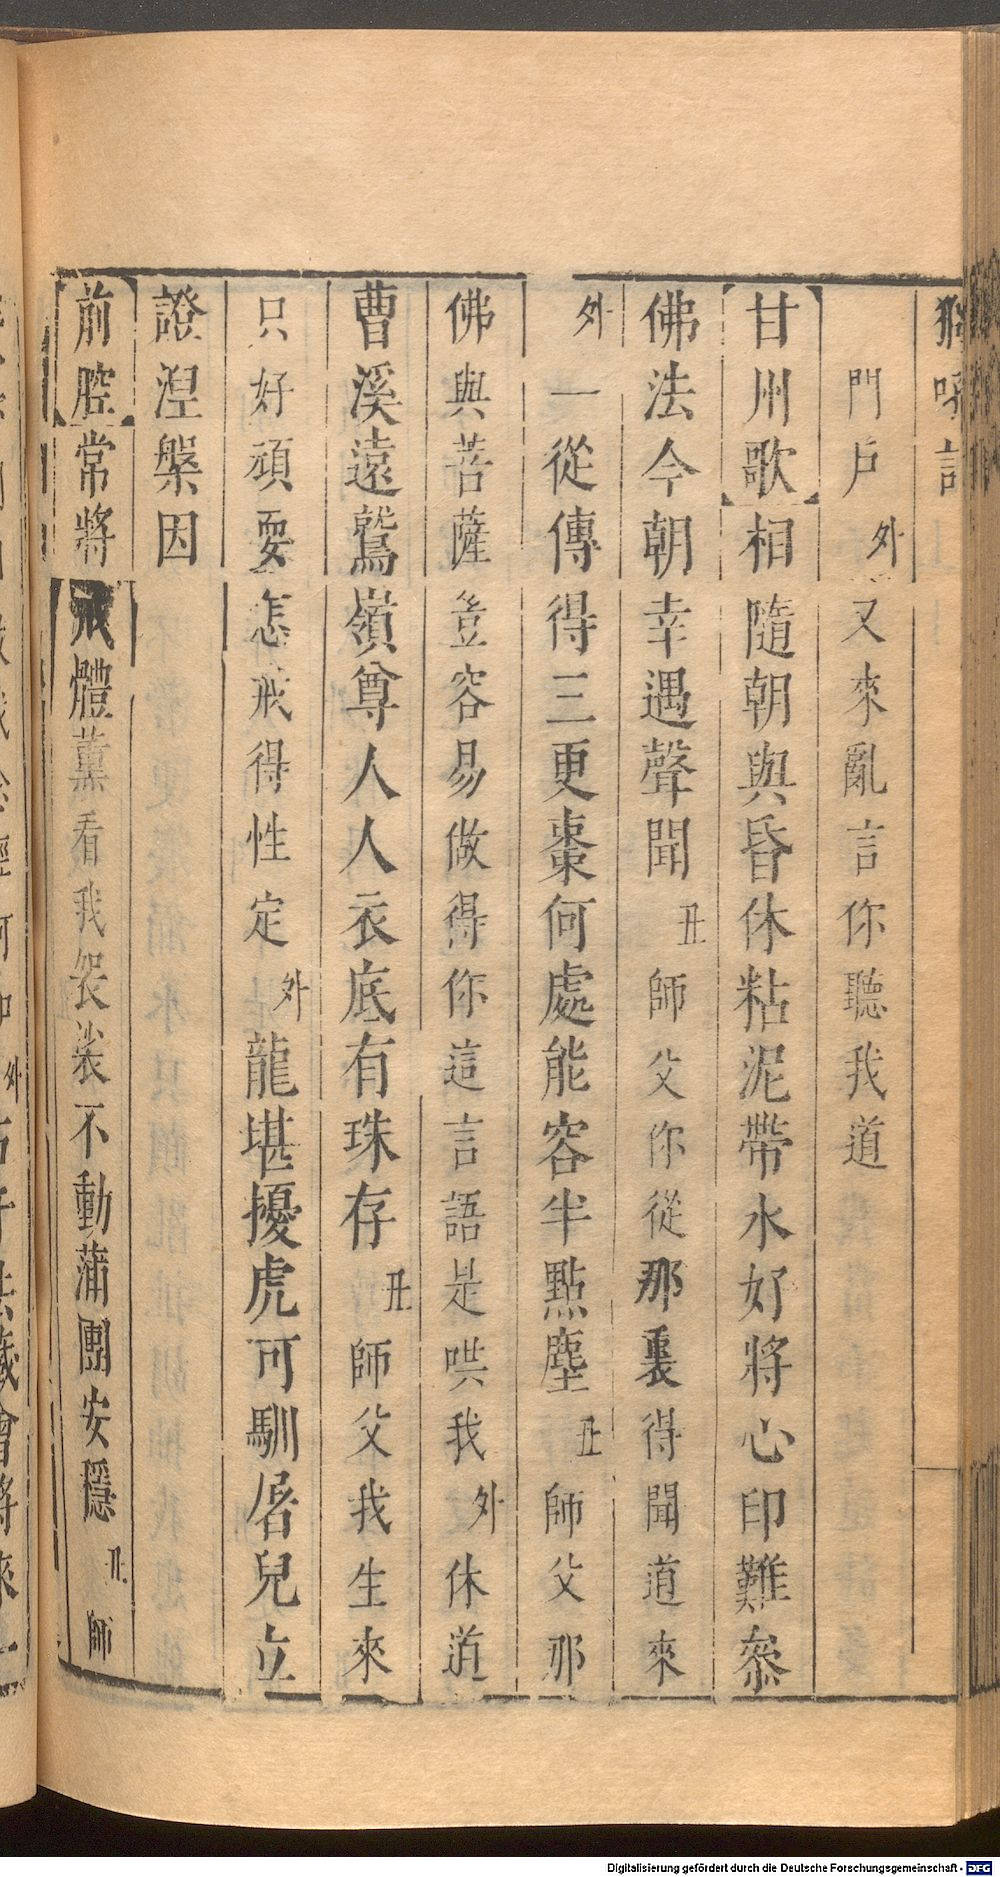 門戶 外 又來亂言你聽我道
【甘州歌】相隨朝與昏休粘泥帶水好將心印難叅
佛法今朝幸遇聲聞 丑 師父你從那裏得聞道來
外 一從傳得三更棗何處能容半點塵 丑 師父那
佛與菩薩豈容易做得你這言語是哄我 外 休道
曹溪遠鷲嶺尊人人衣底有珠存 丑 師父我生來
只好頑耍怎戒得性定 外 龍堪擾虎可馴屠兒立
證涅槃因
【前腔】常將戒體薰看我袈裟不動蒲團安穩 丑 師
Digitalisierung gefördert durch die Deutsche Forschungsgemeinschaft - DFG